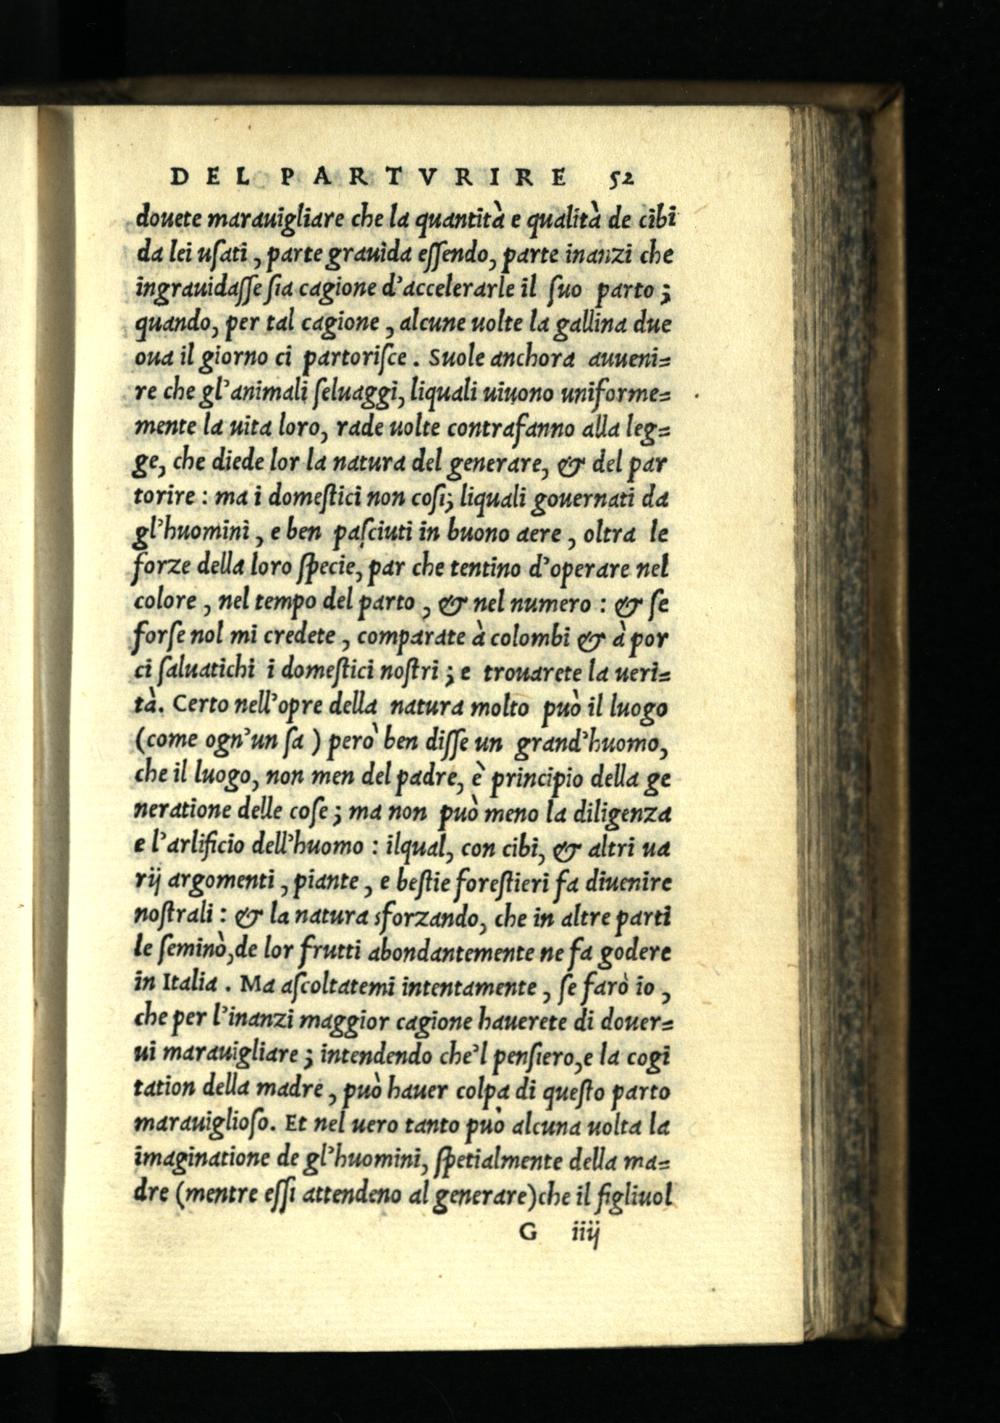 DEL PARTVRIRE 52
douete marauigliare che la quantità e qualità de cibi
da lei uſati, parte grauida eſſendo, parte inanzi che
ingrauidaſſe ſia cagione d'accelerarle il ſuo parto;
quando, per tal cagione, alcune uolte la gallina due
oua il giorno ci partoriſce. Suole anchora auueni=
re che gl'animali ſeluaggi, liquali uiuono uniforme=
mente la uita loro, rade uolte contrafanno alla leg=
ge, che diede lor la natura del generare, & del par
torire: ma i domeſtici non coſi; liquali gouernati da
gl'huomini, e ben paſciuti in buono aere, oltra le
forze della loro ſpecie, par che tentino d'operare nel
colore, nel tempo del parto, & nel numero: & ſe
forſe nol mi credete, comparate à colombi & à por
ci ſaluatichi i domeſtici noſtri; e trouarete la ueri=
tà. Certo nell'opre della natura molto può il luogo
(come ogn'un ſa) però ben diſſe un grand'huomo,
che il luogo, non men del padre, è principio della ge
neratione delle coſe; ma non può meno la diligenza
e l'arlificio dell'huomo: ilqual, con cibi, & altri ua
rij argomenti, piante, e beſtie foreſtieri fa diuenire
noſtrali: & la natura sforzando, che in altre parti
le ſeminò, de lor frutti abondantemente ne fa godere
in Italia. Ma aſcoltatemi intentamente, ſe farò io,
che per l'inanzi maggior cagione hauerete di douer=
ui marauigliare; intendendo che'l penſiero, e la cogi
tation della madre, può hauer colpa di queſto parto
marauiglioſo. Et nel uero tanto può alcuna uolta la
imaginatione de gl'huomini, ſpetialmente della ma=
dre (mentre eſſi attendeno al generare) che il figliuol
G iiij